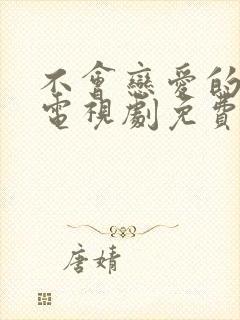 不會戀愛的
電視劇免費
唐婧